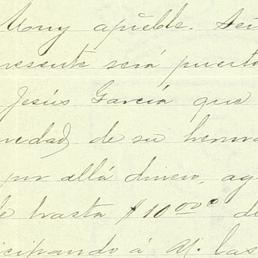 Muy aprëble. Señ
presente será puerto
Jesús García que
vedad de su herma
por allá dinero, ag
hasta $10.00 de
icipando á M. las